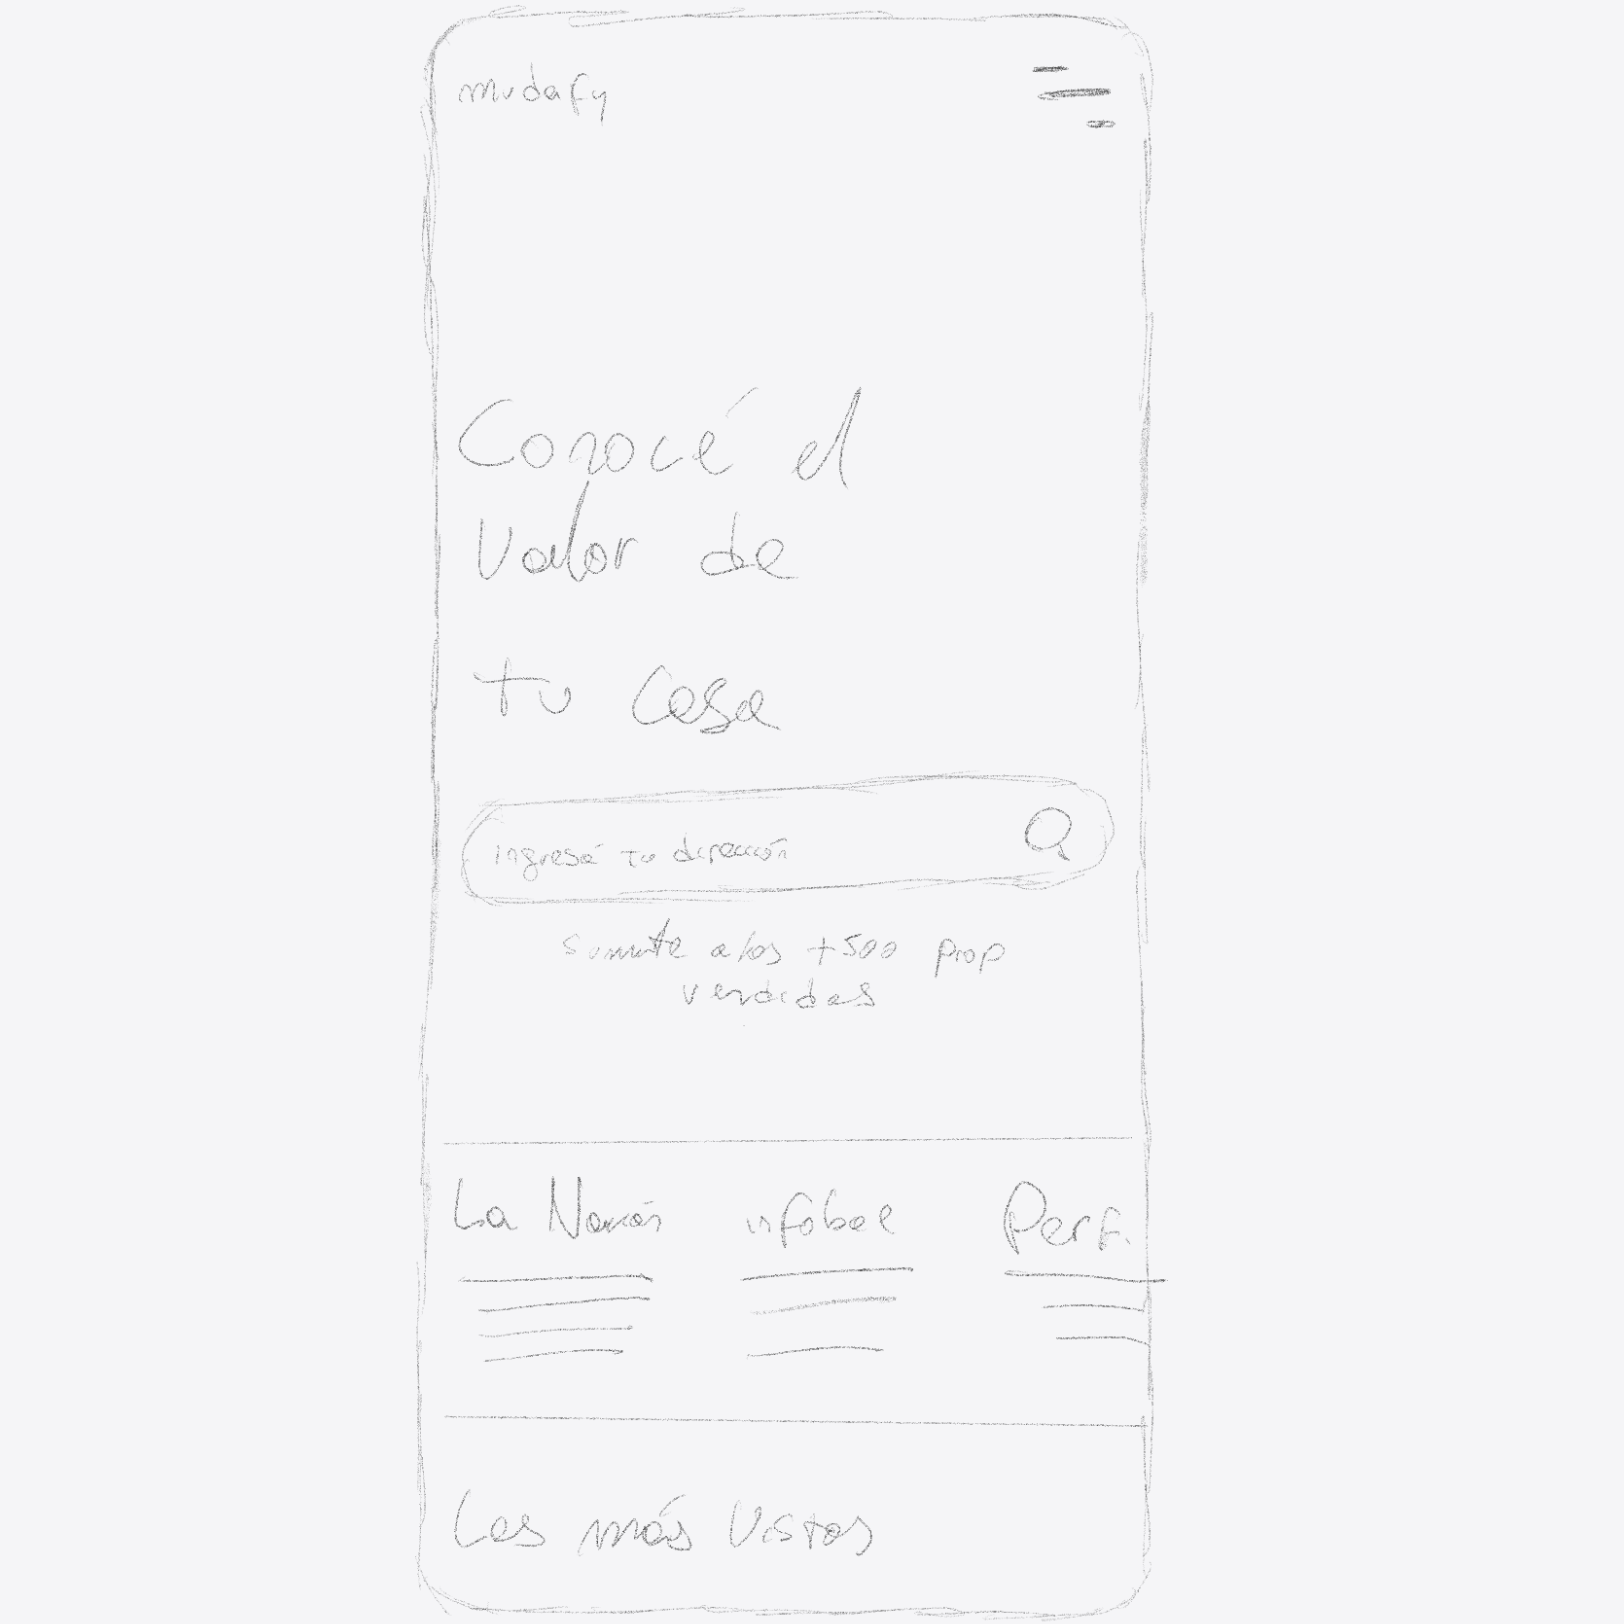 mudafy
Conocé el
valor de
tu casa
ingresá tu dirección
sumate a las +500 prop
vendidas
La Nación infobae Perf.
Las más vistas